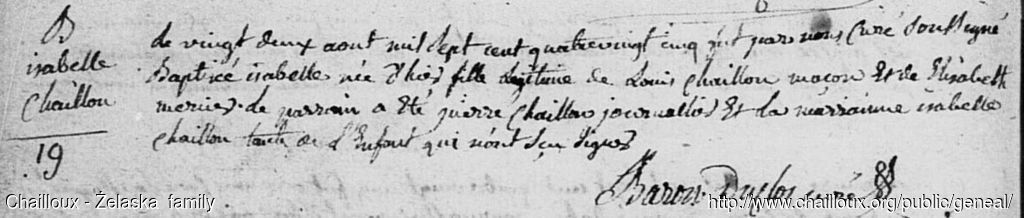 B
isabelle
Chaillou
19
de vingt deux aout mil sept cent quatre vingt cinq fut par nous Curé soussigné
Baptisé isabelle née d'hier fille légitime de Louis Chaillou maçon Et de Elisabeth
mercier. Le parrain a Eté pierre Chaillou journallier Et la marrainne isabelle
chaillou tante de l'Enfant qui n'ont sçu signer
Baron Duclos curé
Chailloux - Żelaska family
http://www.chailloux.org/public/geneal/